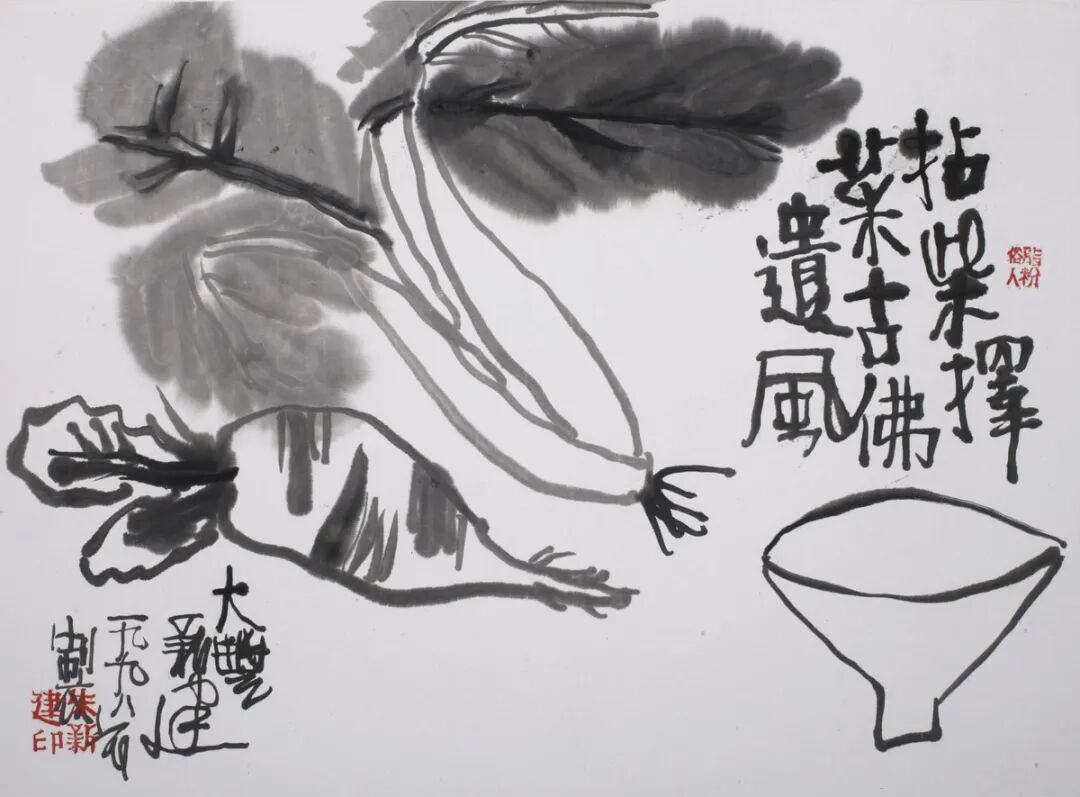 脂粉俗人
拈柴擇
菜古佛
遺風
大豐
新建
一九九八
制
朱新建印